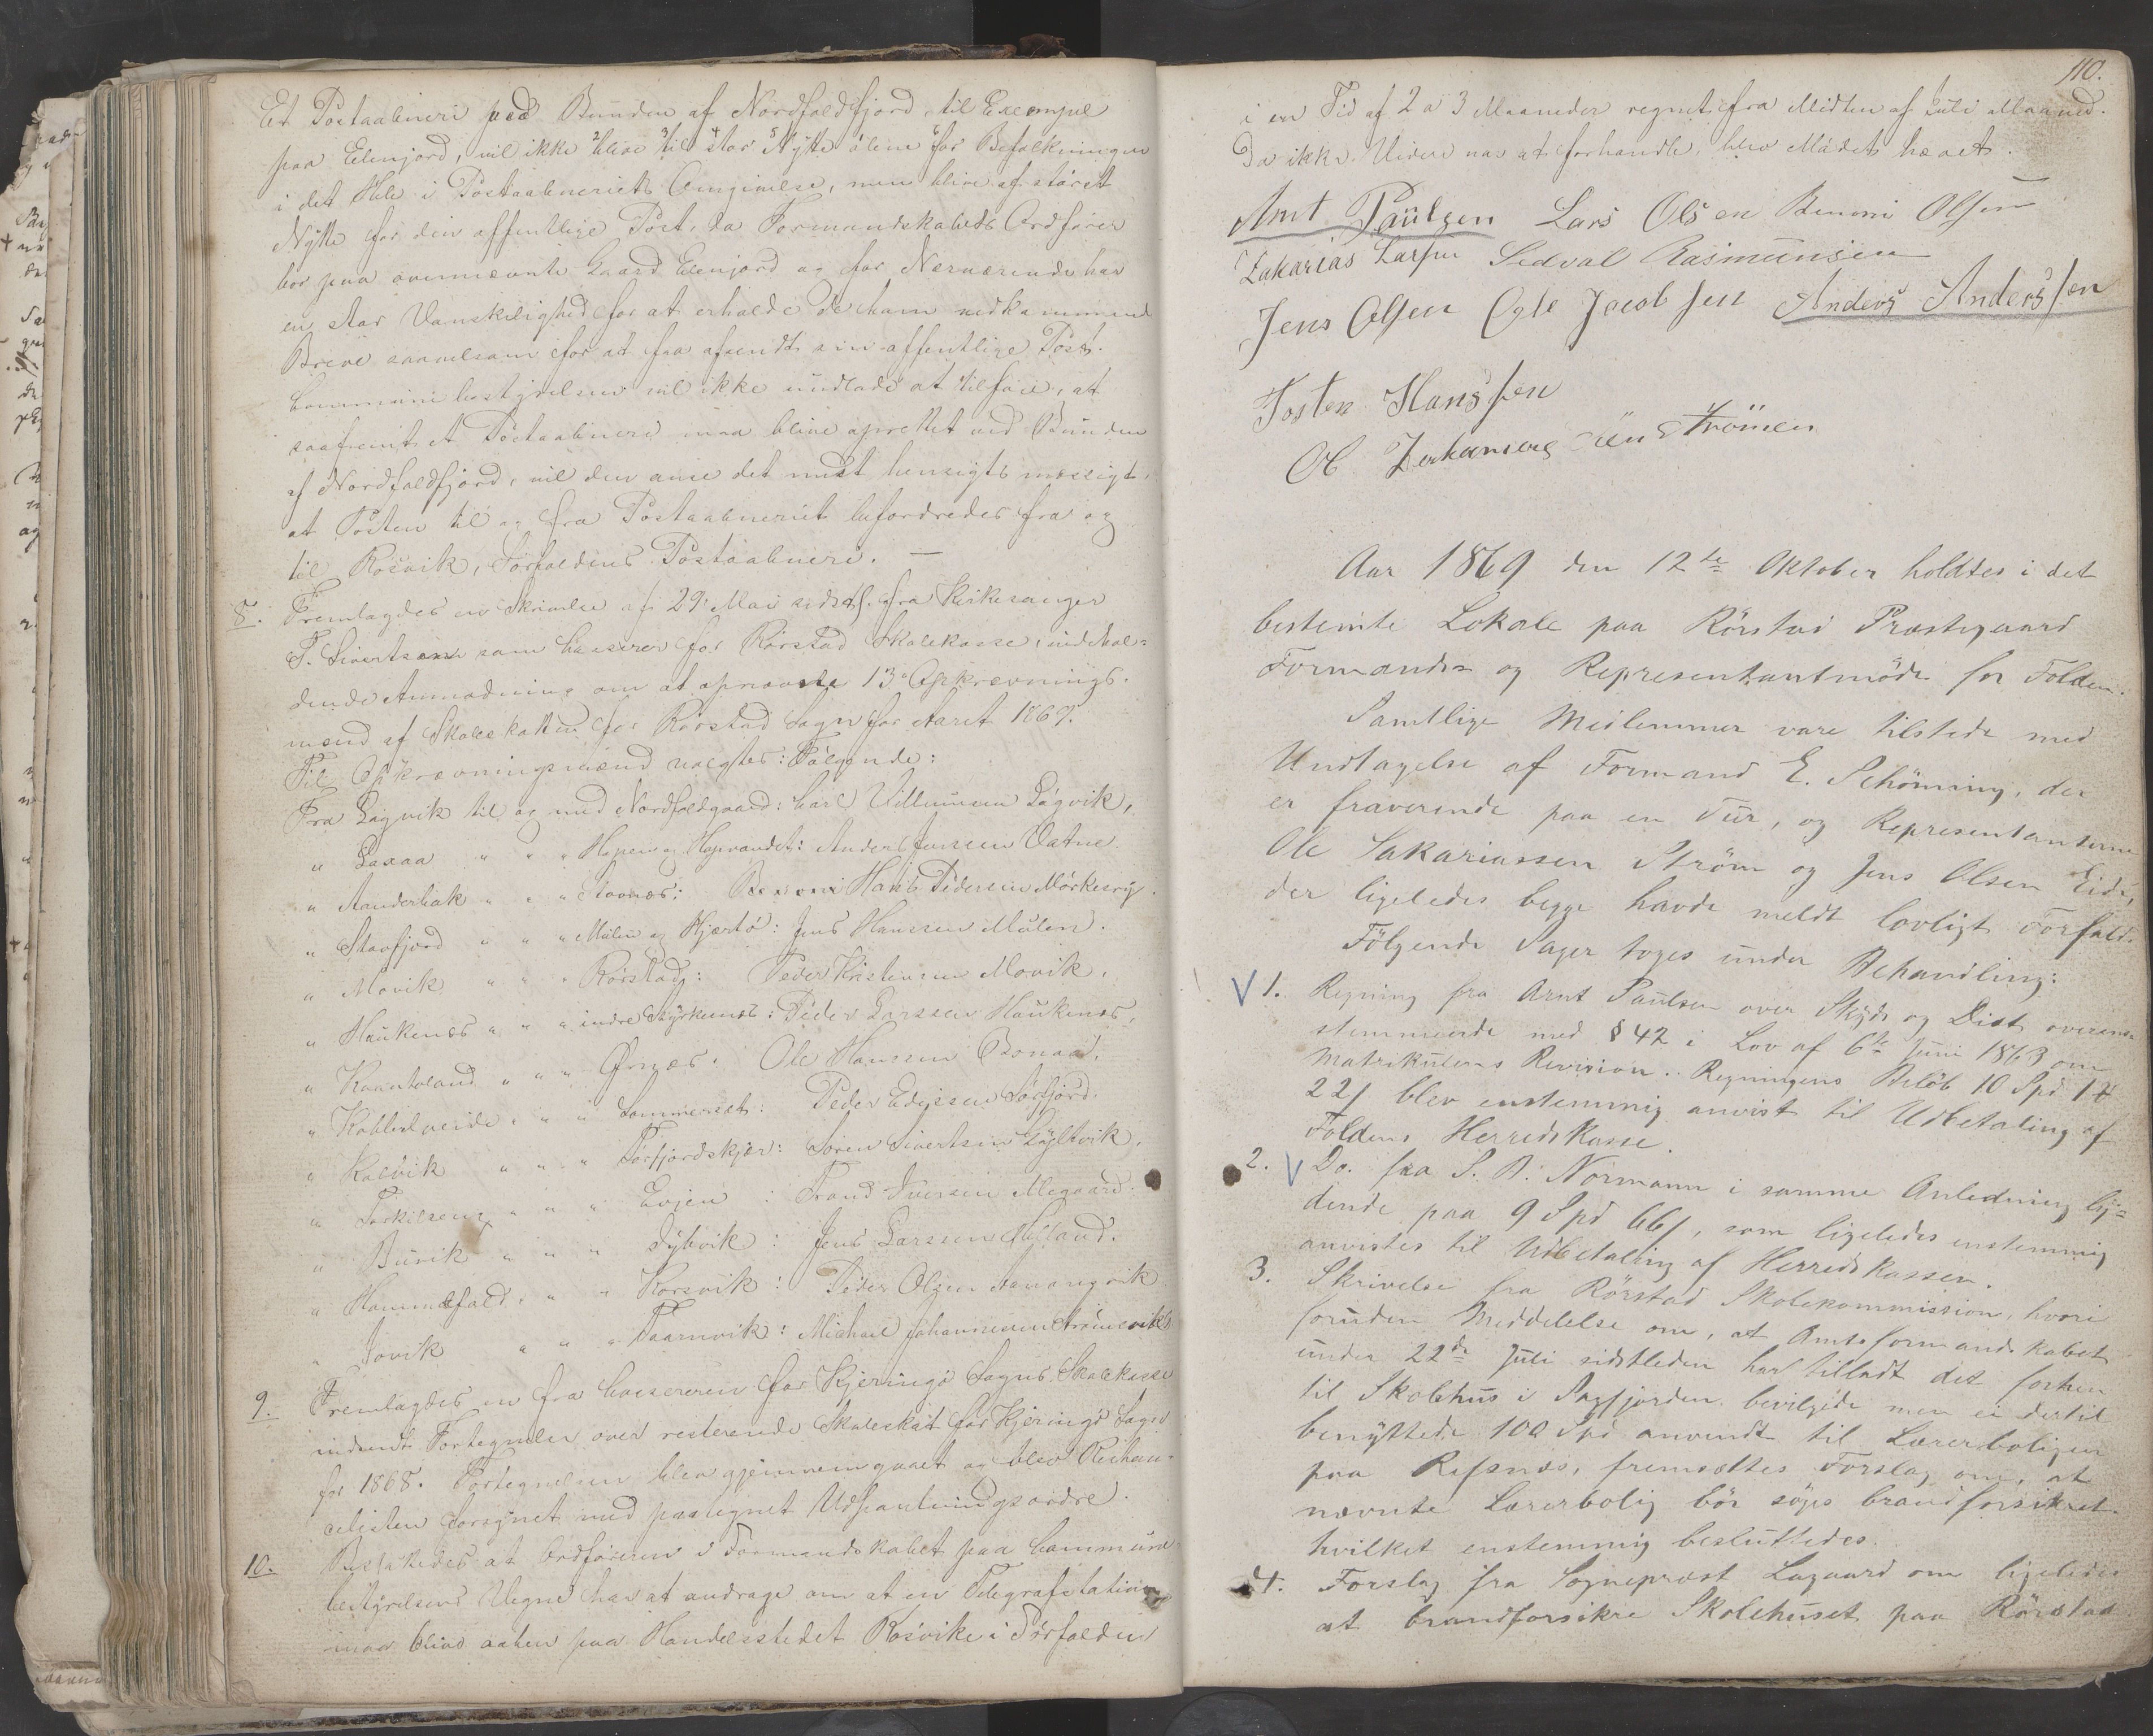 Et Postaabneri ved Bunden af Nordfoldfjord, til Exempel
paa Elenjord, vil ikke blive til stor Nytte alene for Befolkningen
i det Hele i Postaabneriets Omgivelse, men blive af størst
Nytte for den offentlige Post, da Formandskabets Ordfører
bor paa ovennævnte Gaard Elenjord og for Nærværende har
en stor Vanskelighed for at erholde de ham vedkommende
Breve saavelsom for at faa afsendt sin offentlige Post.
Communebestyrelsen vil ikke undlade at tilføie, at
saafremt et Postaabneri maa blive oprettet ved Bunden
af Nordfoldfjord, vil den anse det mest hensigtsmæssigt,
at Posten til og fra Postaabneriet befordredes fra og
til Røsvik, Sørfoldens Postaabneri. —
8. Fremlagdes en Skrivelse af 29. Mai sidstl. fra Kirkesanger
P. Sivertsen som Casserer for Rørstad Skolekasse, indehol=
dende Anmodning om at opnævne 13 Opkrævnings-
mænd af Skoleskatten for Rørstad Sogn for Aaret 1869.
Til Opkrævningsmænd valgtes: Følgende:
Fra Løgvik til og med Nordfoldgaard: Carl Villumsen Løgvik,
" Laxaa " " " Hopen og Hopvandet: Anders Jensen Vatne.
" Aanderbak " " " Stavnæs: Benoni Hans Pedersen Mørkesvig.
" Stavfjord " " " Mulen og Hjærtø: Jens Hanssen Mulen.
" Movik " " " Rørstad: Peder Kristensen Movik.
" Haukenæs " " " indre Styrkenæs: Peder Larssen Haukenæs,
" Kvantoland " " " Ørnæs: Ole Hanssen Bonaad,
" Kobbelveide " " " Sommerset: Peder Edissen Sørfjord.
" Kalvik " " " Tørfjordskjær: Søren Sivertsen Gyltvik,
" Torkilseng " " " Evjen: Trond Iversen Megaard.
" Buvik " " " Dybvik: Jens Larssen
" Hammelfald " " " Røsvik: Peder Olsen
" Jovik " " " Taarnvik: Michael Johannessen Strømsvik.
9. Fremlagdes en fra Cassereren for Kjeringø Sogns Skolekasse
indsendt Fortegnelse over resterende Skoleskat for Kjeringø Sogn
for 1868. Fortegnelsen blev gjennemgaaet og blev Restan-
celisten forsynet med paategnet Udpantningsordre.
10. Besluttedes at Ordføreren i Formandskabet paa Commune
bestyrelsens Vegne har at andrage om at en Telegrafstation
maa blive aaben paa Handelsstedet Røsvike i Sørfolden
110.
i en Tid af 2 a 3 Maaneder regnet fra Midten af Juli Maaned.
Da ikke Videre var at forhandle, blev Mødet hævet.
Arnt Paulsen Lars Olsen Benoni Olsen
Zakarias Larsen Sedval Rasmunsen
Jens Olsen Ole Jacobsen Anders Anderssen
Tosten Hanssen
Ol Zerkariaes Strömen
Aar 1869 den 12te Oktober holdtes i det
bestemte Lokale paa Rörstad Præstegaard
Formands= og Representantmöde for Folden.
Samtlige Medlemmer vare tilstede med
Undtagelse af Formand E. Schönning, der
er fraværende paa en Tur, og Representanterne
Ole Sakariassen Ström og Jens Olsen Eide,
der ligeledes begge havde meldt lovligt Forfald.
Fölgende Sager toges under Behandling:
1. Regning fra Arnt Paulsen over Skyds og Diæt overens=
stemmende med § 42 i Lov af 6te Juni 1863 om
Matrikulens Revision. Regningens Belöb 10 Spd 1
22 blev enstemmig anvist til Udbetaling af
Foldens Herredskasse.
2. Do. fra S. B. Normann i samme Anledning ly=
dende paa 9 Spd 66, som ligeledes enstemmig
anvistes til Udbetaling af Herredskassen.
3. Skrivelse fra Rörstad Skolekommission, hvori
foruden Meddelelse om, at Amtsformandskabet
under 22de Juli sidstleden har tilladt det forhen
til Skolehus i Sagfjorden bevilgede men ei dertil
benyttede 100 Spd anvendt til Lærerboligen
paa Refsnæs, fremsættes Forslag om, at
nævnte Lærerbolig bör söges brandforsikret
hvilket enstemmig besluttedes.
4. Forslag fra Sogneprest Lagaard om ligeledes
at brandforsikre Skolehuset paa Rörstad